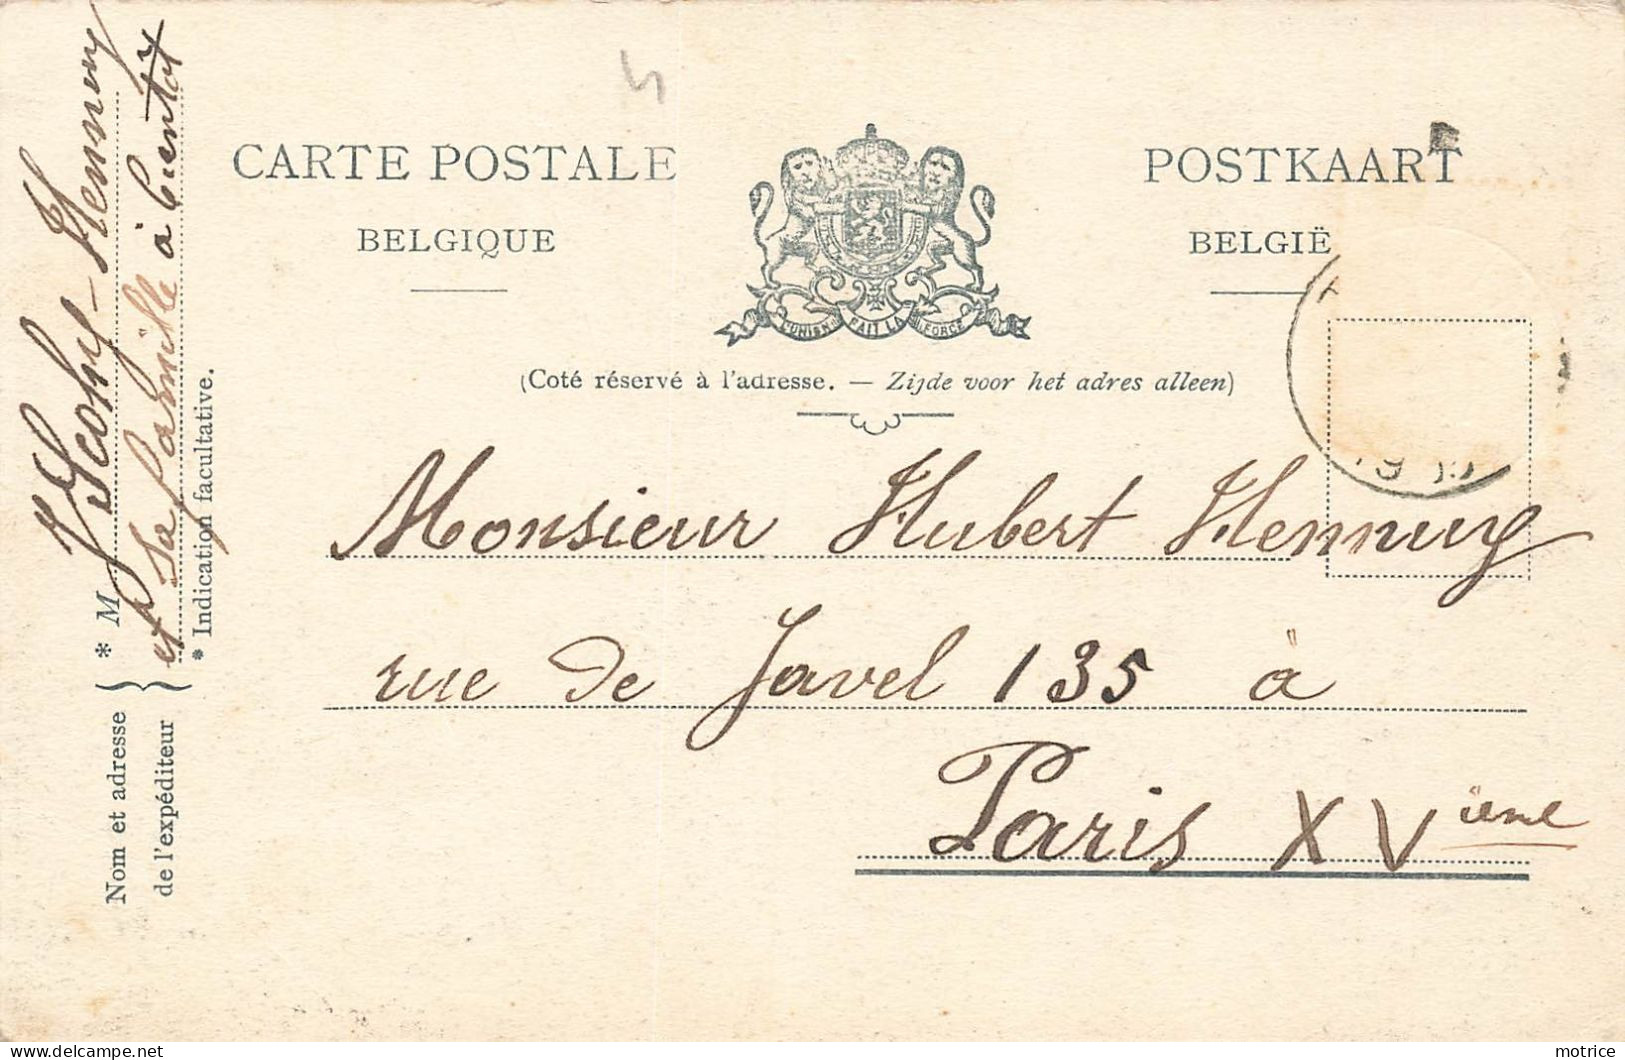 CARTE POSTALE
BELGIQUE
POSTKAART
BELGIË
L'UNION FAIT LA FORCE
(Coté réservé à l'adresse. — Zijde voor het adres alleen)
Monsieur Hubert Hennuy
rue de Javel 135 à
Paris XVième
Nom et adresse
de l'expéditeur
* M
Hennuy
et sa famille à bientôt
* Indication facultative.
motrice